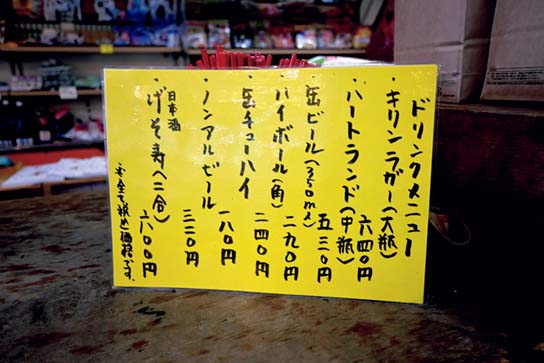 ドリンクメニュー
・キリンラガー(大瓶) 六四〇円
・ハートランド(中瓶) 五三〇円
・缶ビール(350ml) 二九〇円
・ハイボール(角) 二四〇円
・缶チューハイ 一八〇円
・ノンアルビール 三二〇円
日本酒
・げそ寿(二合) 六〇〇円
※全て税込価格です。